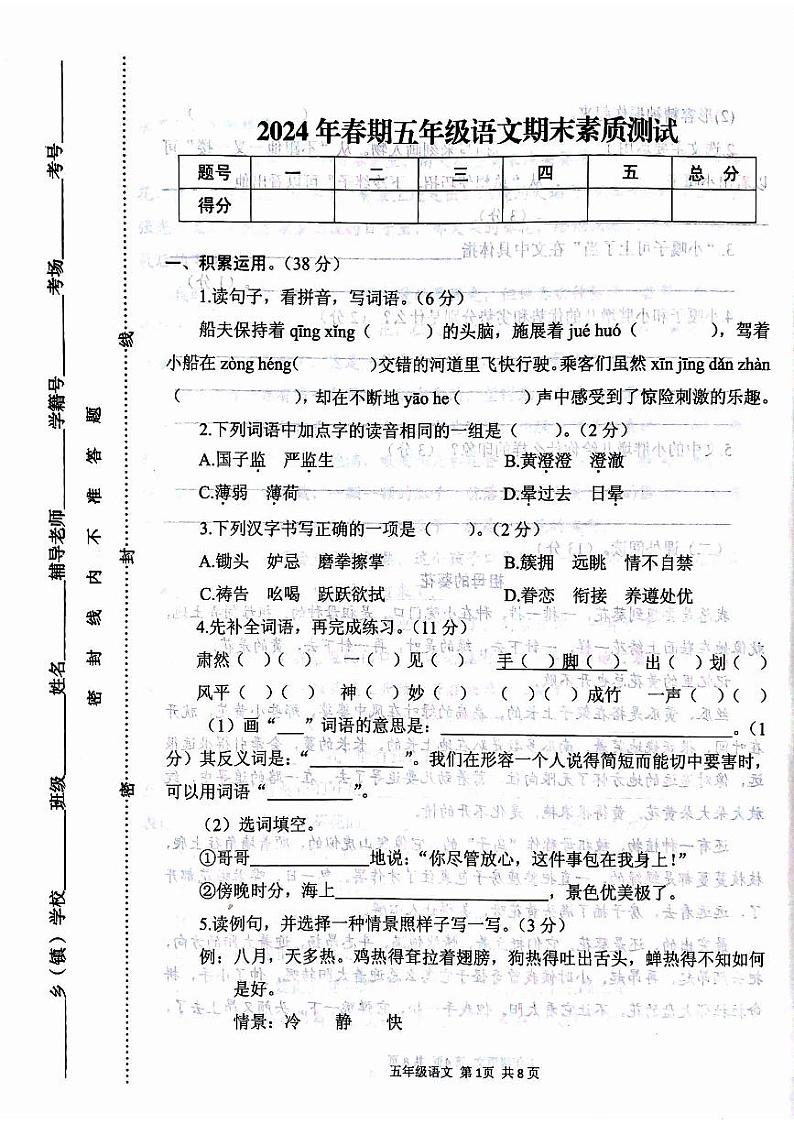 2024年春期五年级语文期末素质测试
题号 一 二 三 四 五 总 分
得分
一、积累运用。(38分)
1.读句子，看拼音，写词语。(6分)
船夫保持着qīng xǐng（ ）的头脑，施展着jué huó（ ），驾着
小船在zòng héng( )交错的河道里飞快行驶。乘客们虽然xīn jīng dǎn zhàn
（ ），却在不断地yāo he（ ）声中感受到了惊险刺激的乐趣。
2.下列词语中加点字的读音相同的一组是（ ）。(2分)
A.国子监 严监生 B.黄澄澄 澄澈
C.薄弱 薄荷 D.晕过去 日晕
3.下列汉字书写正确的一项是（ ）。(2分)
A.锄头 妒忌 磨拳擦掌 B.簇拥 远眺 情不自禁
C.祷告 吆喝 跃跃欲拭 D.眷恋 衔接 养遵处优
4.先补全词语，再完成练习。(11分)
肃然（ ）（ ） 一（ ）见（ ） 手（ ）脚（ ） 出（ ）划（ ）
风平（ ）（ ） 神（ ）妙（ ） （ ）（ ）成竹 一声（ ）（ ）
（1）画“___”词语的意思是：______。(1
分）其反义词是：“______”。我们在形容一个人说得简短而能切中要害时，
可以用词语“______”。
（2）选词填空。
①哥哥______地说：“你尽管放心，这件事包在我身上！”
②傍晚时分，海上______，景色优美极了。
5.读例句，并选择一种情景照样子写一写。(3分)
例：八月，天多热。鸡热得耷拉着翅膀，狗热得吐出舌头，蝉热得不知如何
是好。
情景：冷 静 快
五年级语文 第1页 共8页
乡（镇）学校______班级______姓名______辅导老师______学籍号______考场______考号______
密 封 线 内 不 准 答 题
密 封 线